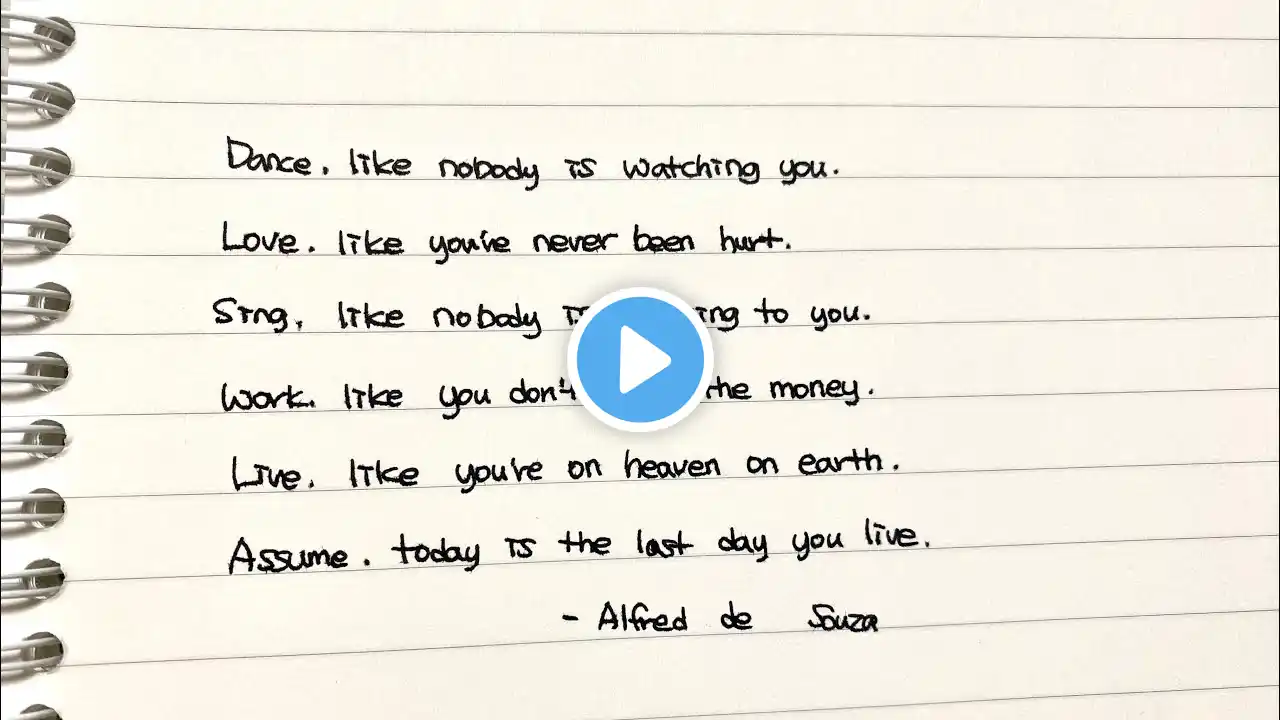 Dance. like nobody is watching you.
Love. like you've never been hurt.
Sing. like nobody to you.
Work. like you don't the money.
Live. like you're on heaven on earth.
Assume. today is the last day you live.
- Alfred de Souza